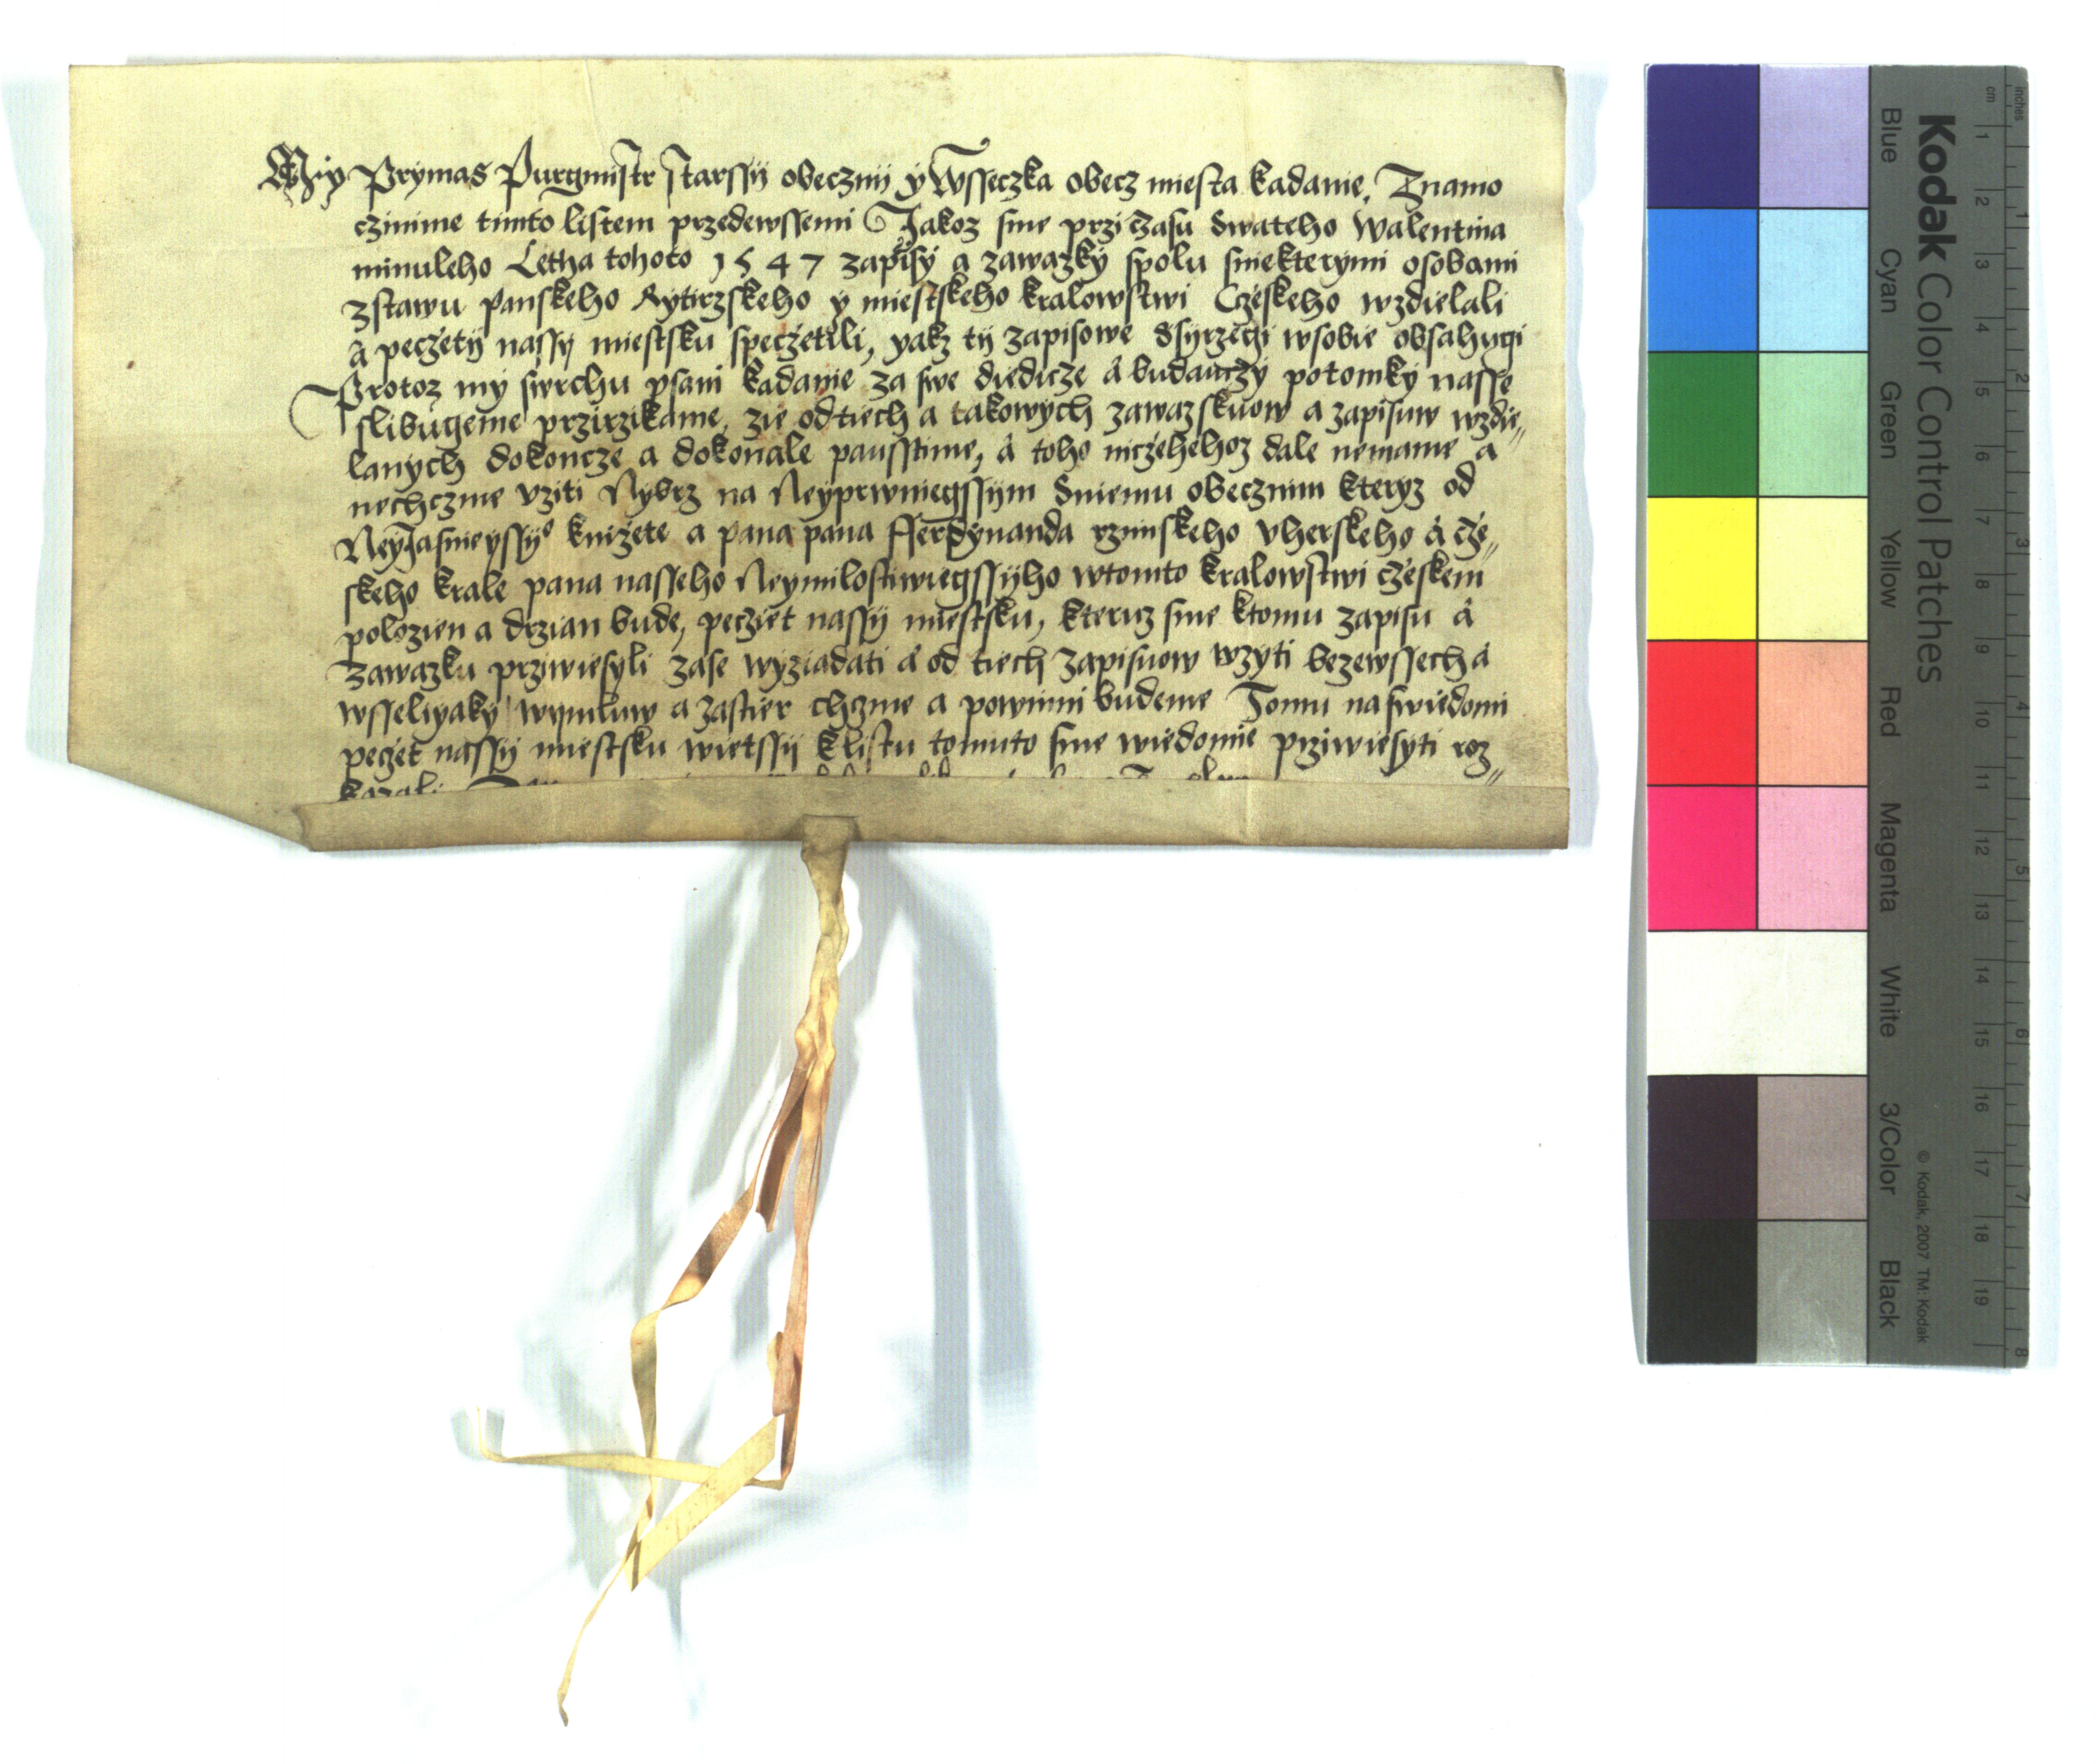 My Prymas Purgmistr starssij obecznij ẏ Wsseczka obecz miesta kadanie, Znamo
czinime timto listem przedewssemi Jakoz sme przi czasu Swateho Walentina
minuleho Letha tohoto 1547 zapisy a zawazky spolu sniekterymi osobami
zstawu panskeho Rytirzskeho ẏ miestskeho kralowstwi Czeskeho wzdielali
a peczetij nassy miestsku speczetili, yakz tij zapisowe Ssyrzegi wsobie obsahugi
Protoz my swrchu psani kadanie za swe diedicze a budauczy potomky nasse
slibugeme przirzikame, zie odtiech a takowych zawazskuow a zapisuw wzdie„
lanych dokoncze a dokonale pausstime, a toho niczehehoz dale nemame a
nechczme vziti Nybrz na Neyprwniegssijm Sniemu obecznim kteryz od
NeyJasnieyssyº knizete a pana pana Fferdynanda rzimskeho Vherskeho a cze„
skeho krale pana nasseho Neymilostiwiegssyho wtomto kralowstwi czeskem
polozien a drzian bude, pecziet nassij miestsku, kteruz sme ktomu zapisu a
zawazku prziwiesyli zase wyziadati a od tiech zapisuow wzyti bezewssech a
wsseliyaky wymluw a zastier chczme a powinni budeme Tomu naswiedomi
peczet nassij miestsku wietssij klistu tomuto sme wiedomie prziwiesyti roz„
kazali
Kodak Color Control Patches
Blue Cyan Green Yellow Red Magenta White 3/Color Black
© Kodak, 2007 TM: Kodak
cm 1 2 3 4 5 6 7 8 9 10 11 12 13 14 15 16 17 18 19
inches 1 2 3 4 5 6 7 8